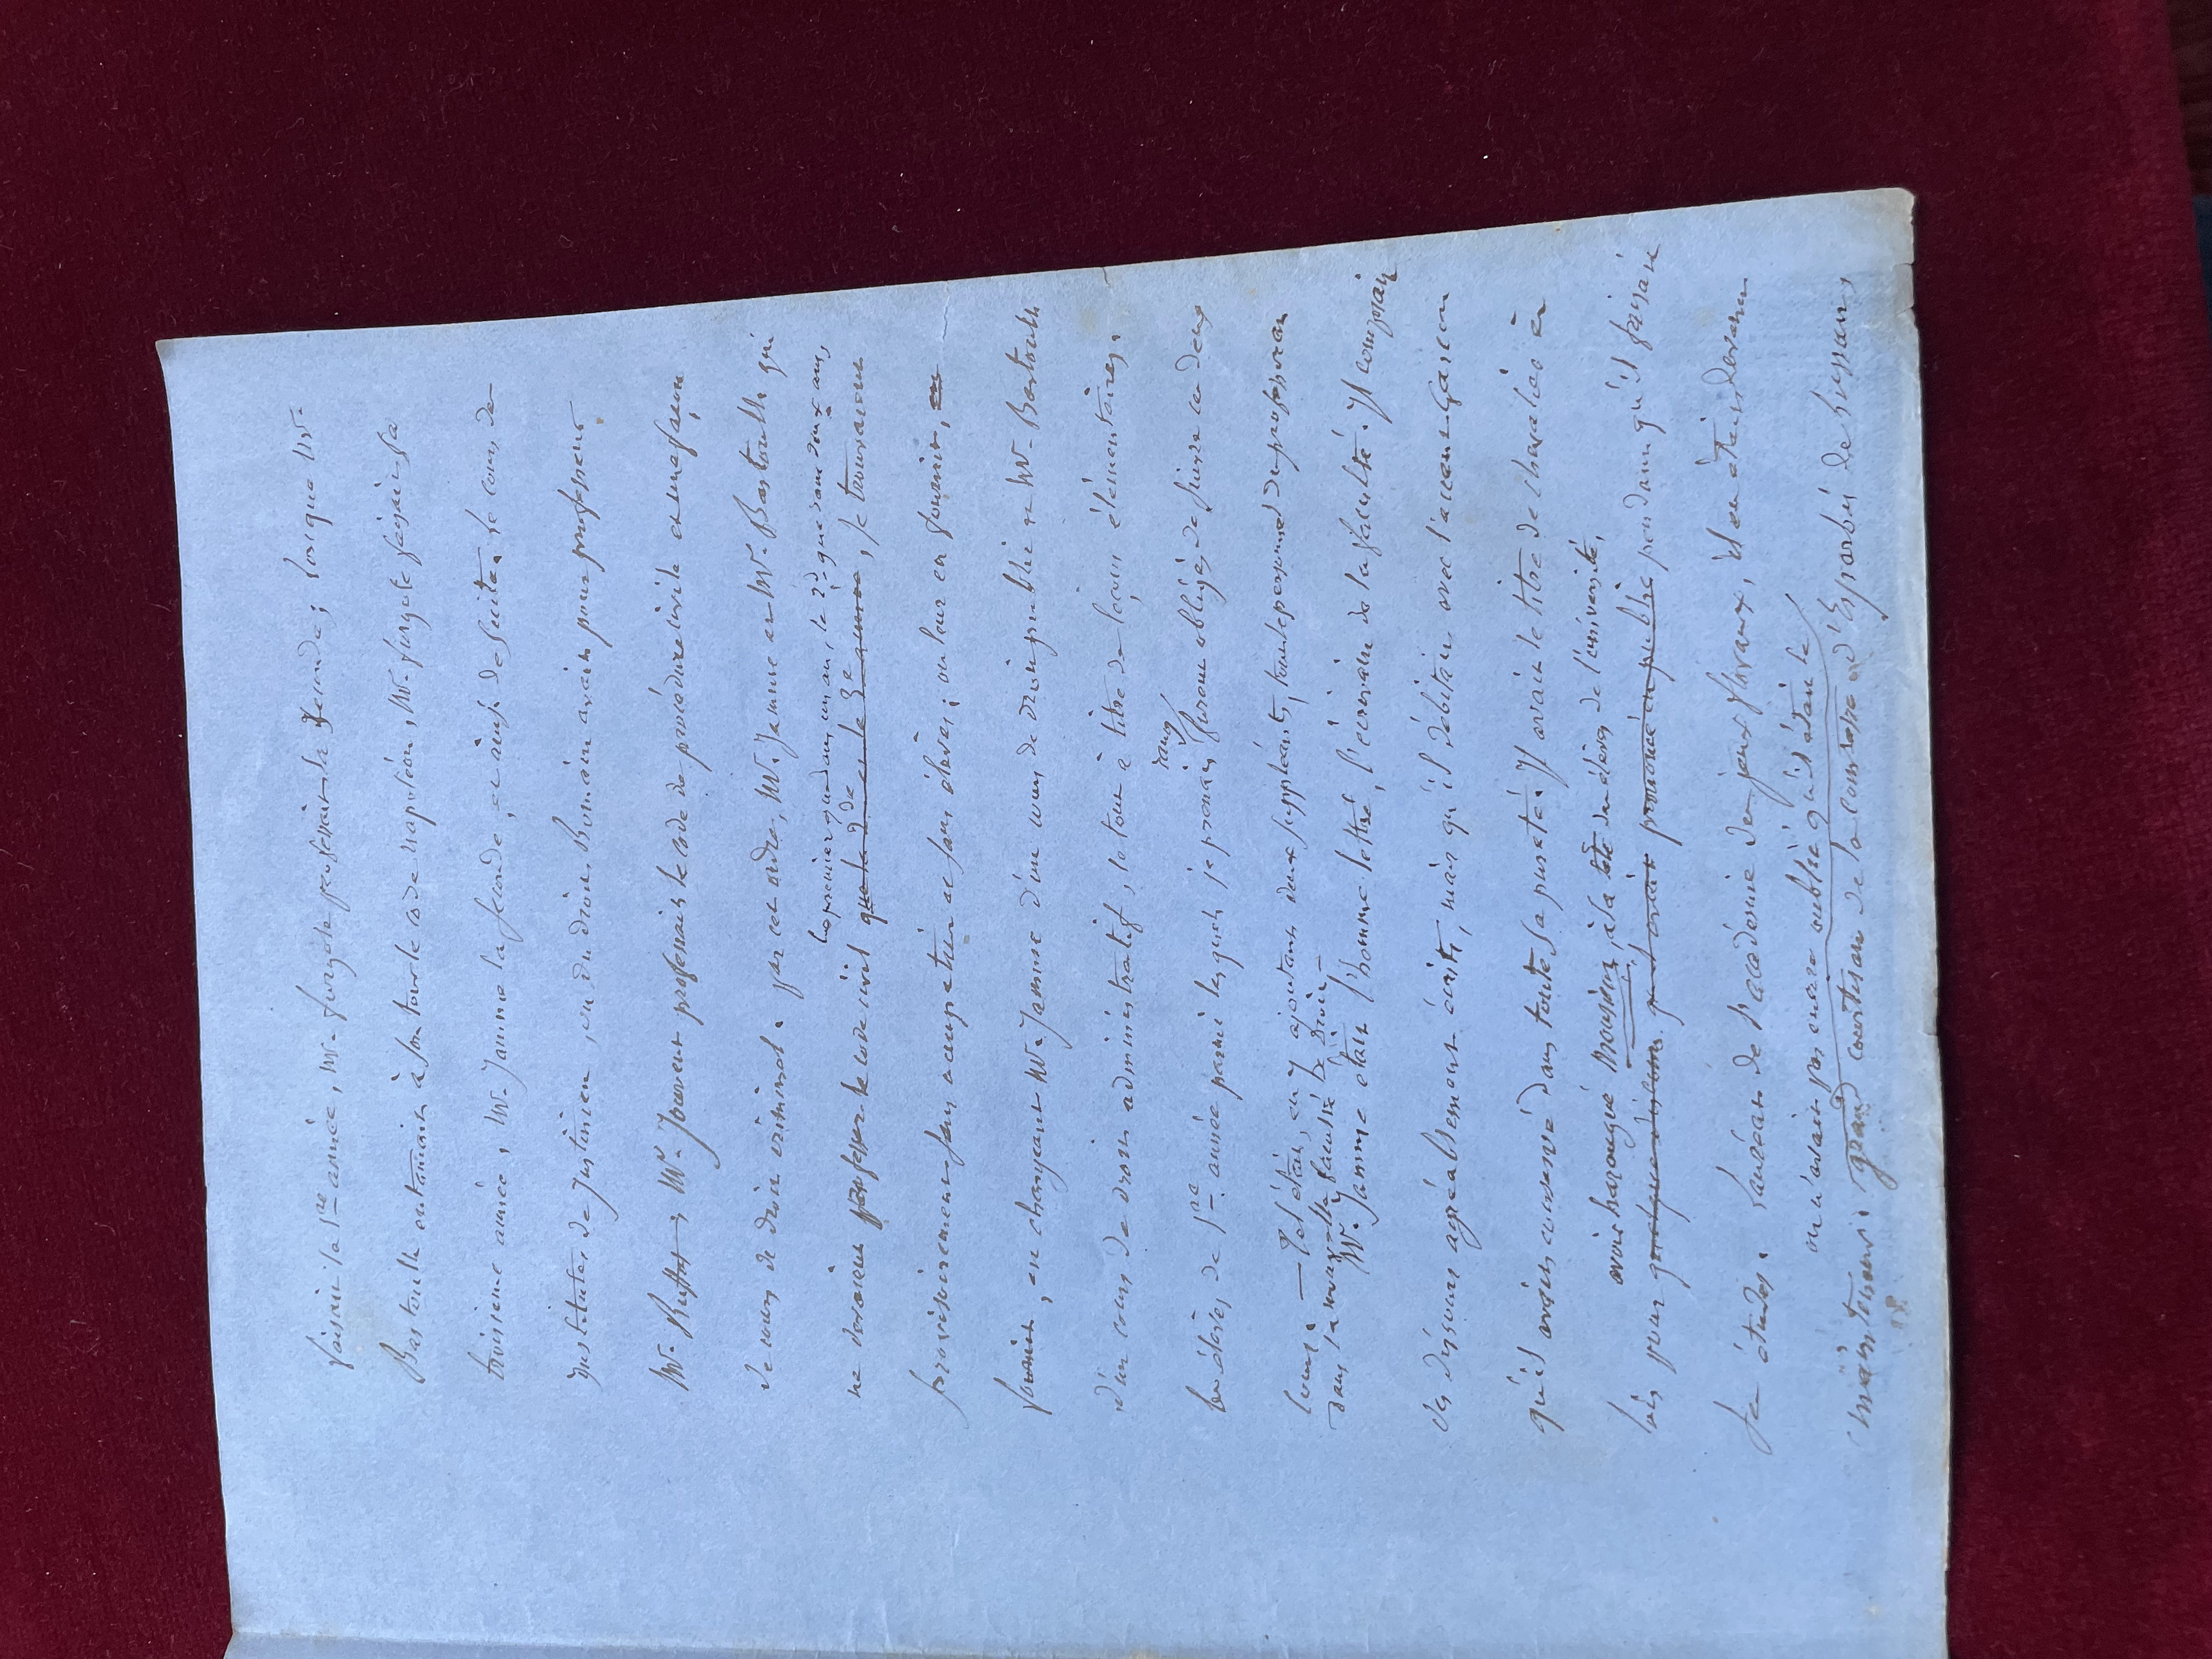 faisait la 1re année, Mr. furgole professait la seconde; lorsque Mr.
Bastoulh entamait à son tour le code napoléon, Mr. furgole faisait sa
troisième année, Mr. Jamme la seconde, et ainsi de suite. le cours des
institutes de Justinien, ou du droit Romain avait pour professeur
Mr. Ruffat, Mr. Jouvent professait le code de procédure civile et
le cours de droit criminel. par cet ordre, Mr. Jamme et Mr. Bastoulh qui
le premier que dans un an, le 2d que dans deux ans,
ne devaient professer le code civil que la 2de et la 3e année, se trouvaient
provisoirement sans occupation et sans élèves; on leur en fournit, en
fournit, en chargeant Mr. Jamme d'un cours de droit public et Mr. Bastoulh
d'un cours de droit administratif, le tout à titre de leçons élémentaires.
rang
les élèves de 1re année parmi lesquels je prenais furent obligés de suivre ces deux
cours. — Tel était, en y ajoutant deux suppléants, tout le personnel du professorat
dans la nouvelle faculté de Droit —
Mr. Jamme était l'homme lettré, l'écrivain de la faculté. Il composait
des discours agréablement écrits, mais qu'il débitait avec l'accent gascon
qu'il avait conservé dans toute sa pureté. Il avait le titre de chevalier et
avait harangué Monsieur, à la tête des élèves de l'université,
lois pour quelque discours qu'il avait prononcé en public pendant qu'il faisait
ses études. Lauréat de l'académie des jeux floraux, il en était devenu
on n'avait pas encore oublié qu'il était le
mainteneur. grand courtisan de la comtesse d'Esparbès de Lussan,